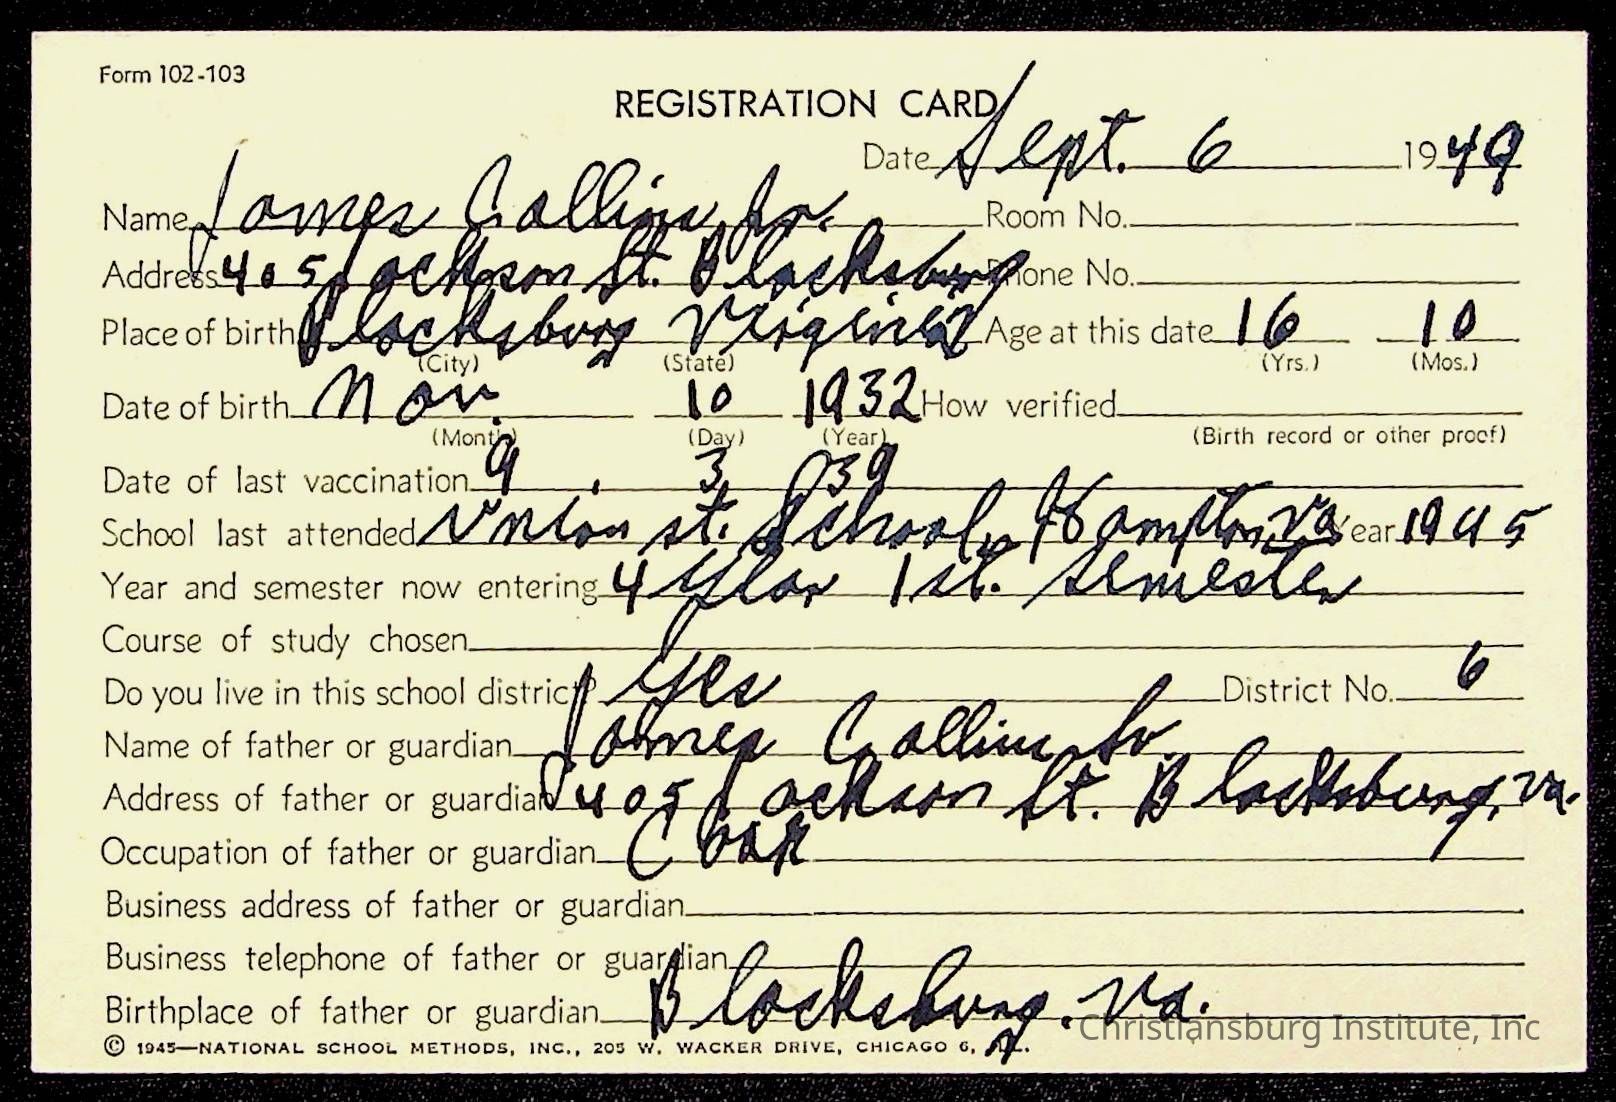 Form 102-103
REGISTRATION CARD
Date Sept. 6 1949
Name James Collins Jr. Room No.
Address 405 Jackson St. Blacksburg Phone No.
Place of birth Blacksburg Virginia Age at this date 16 10
(City) (State) (Yrs.) (Mos.)
Date of birth Nov. 10 1932 How verified
(Month) (Day) (Year) (Birth record or other proof)
Date of last vaccination 9 3 39
School last attended Union st. School, Hampton, Va Year 1945
Year and semester now entering 4 year 1st. semester
Course of study chosen
Do you live in this school district? Yes District No. 6
Name of father or guardian James Collins Sr.
Address of father or guardian 405 Jackson St. Blacksburg, Va.
Occupation of father or guardian Cook
Business address of father or guardian
Business telephone of father or guardian
Birthplace of father or guardian Blacksburg, Va.
Christiansburg Institute, Inc
© 1945—NATIONAL SCHOOL METHODS, INC., 205 W. WACKER DRIVE, CHICAGO 6, ILL.